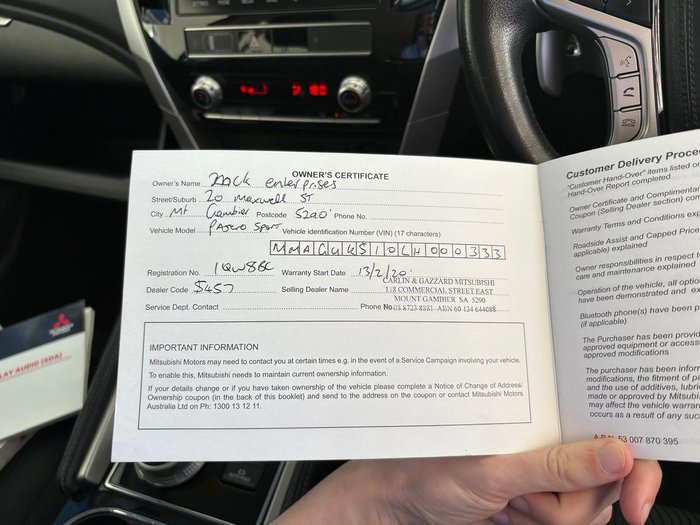 OWNER'S CERTIFICATE
Owner's Name Zack enterprises
Street/Suburb 20 Maxwell ST
City Mt Gambier Postcode 5290 Phone No.
Vehicle Model Pajero Sport Vehicle identification Number (VIN) (17 characters)
Registration No. Warranty Start Date 13/2/20
Dealer Code Selling Dealer Name CARLIN & GAZZARD MITSUBISHI
118 COMMERCIAL STREET EAST
MOUNT GAMBIER SA 5290
Service Dept. Contact Phone No 08 8723 8881 ABN 60 134 644088
IMPORTANT INFORMATION
Mitsubishi Motors may need to contact you at certain times e.g. in the event of a Service Campaign involving your vehicle.
To enable this, Mitsubishi needs to maintain current ownership information.
If your details change or if you have taken ownership of the vehicle please complete a Notice of Change of Address/
Ownership coupon (in the back of this booklet) and send to the address on the coupon or contact Mitsubishi Motors
Australia Ltd on Ph: 1300 13 12 11.
Customer Delivery Proce
"Customer Hand-Over" items listed o
Hand-Over Report completed
Owner Certificate and Complimentar
Coupon (Selling Dealer section) com
Warranty Terms and Conditions exp
Roadside Assist and Capped Price
applicable) explained
Owner responsibilities in respect to
care and maintenance explained
Operation of the vehicle, all option
have been demonstrated and ex
Bluetooth phone(s) have been p
(if applicable)
The Purchaser has been provid
approved equipment or access
approved modifications
The purchaser has been inform
modifications, the fitment of pa
and the use of additives, lubric
made or approved by Mitsubi
may affect the vehicle warran
occurs as a result of any suc
A.B.N. 63 007 870 395
MITSUBISHI
LAY AUDIO (SDA)